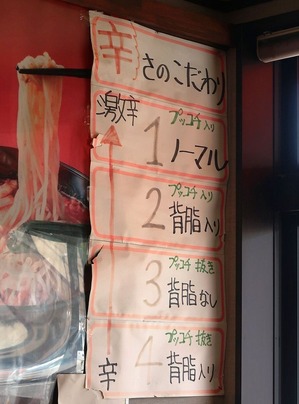 辛さのこだわり
激辛
プッコチ入り
1 ノーマル
プッコチ入り
2 背脂入り
プッコチ抜き
3 背脂なし
プッコチ抜き
4 背脂入り
辛